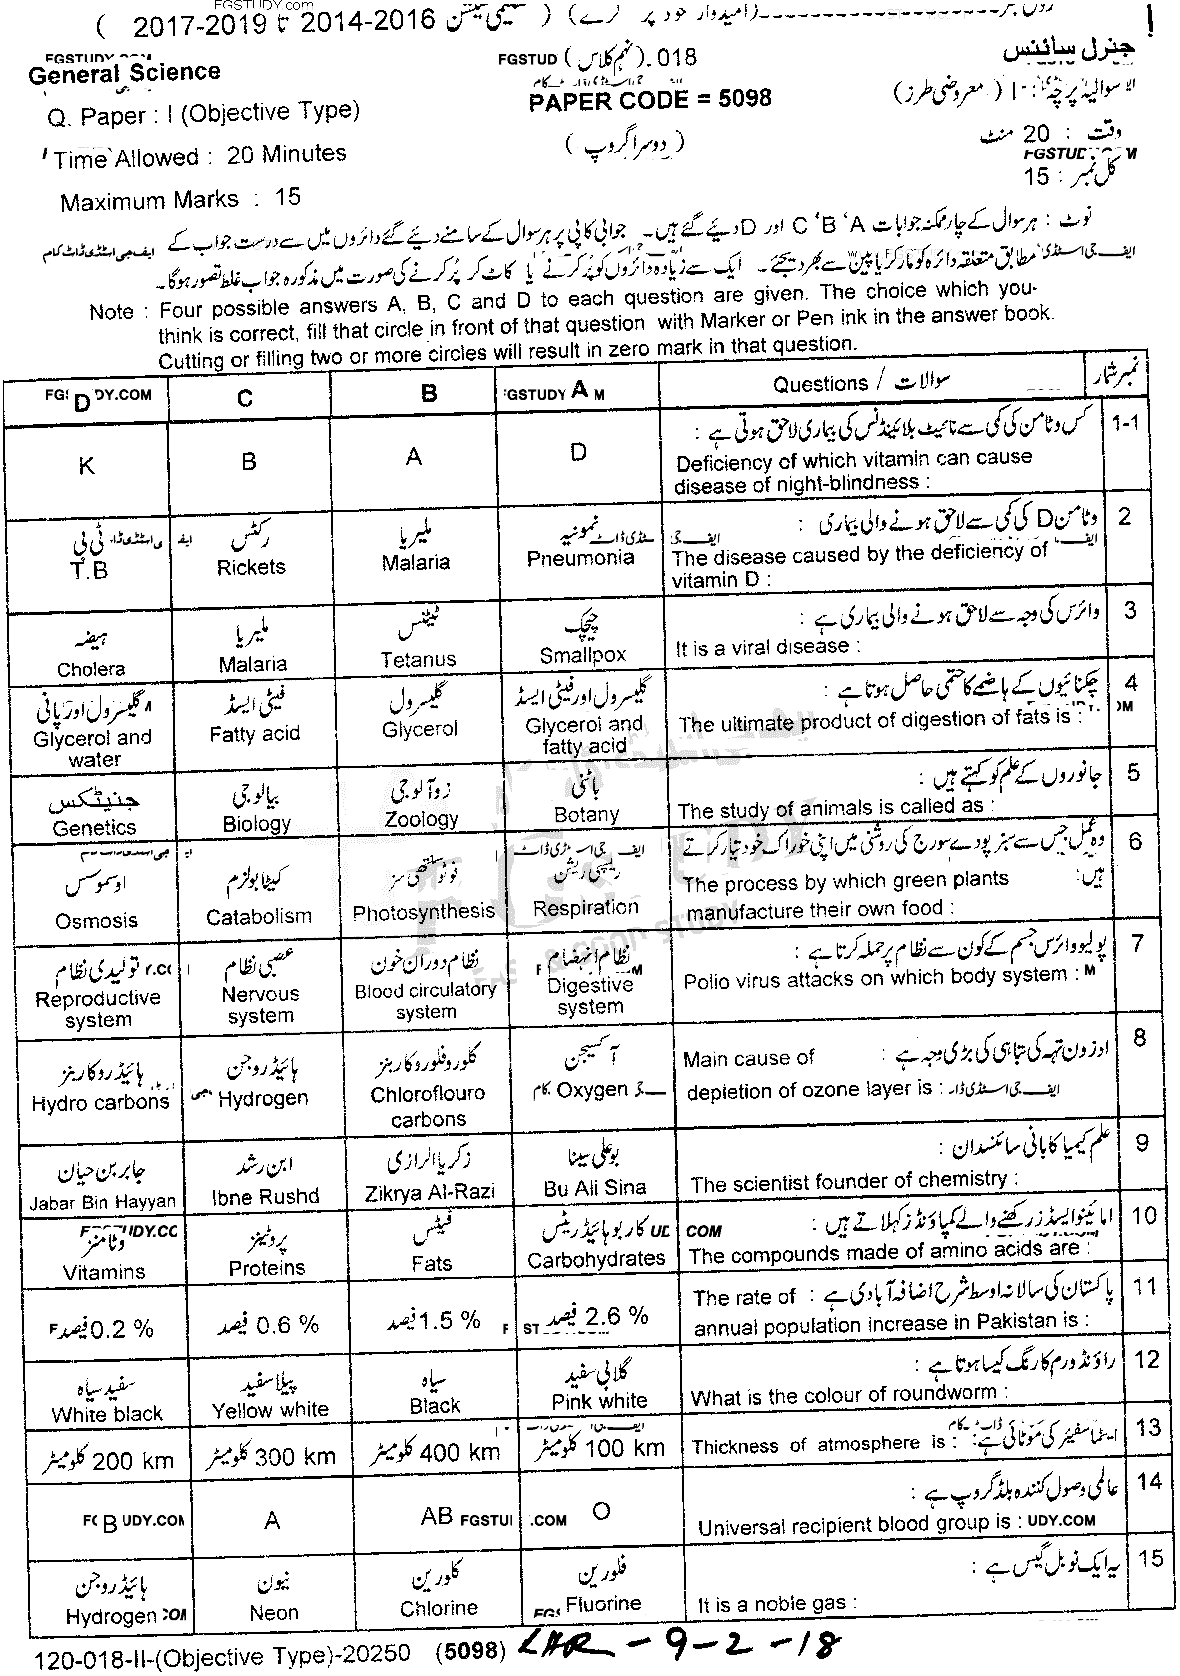 FGSTUDY.com
( 2017-2019 تا 2014-2016 تعلیمی سیشن ) (امیدوار خود پر کرے) ------------------ رول نمبر
جنرل سائنس
018. (نہم کلاس)
FGSTUD
FGSTUDY.COM
General Science
سوالیہ پرچہ : I ( معروضی طرز )
PAPER CODE = 5098
Q. Paper : I (Objective Type)
وقت : 20 منٹ
( دوسرا گروپ )
Time Allowed : 20 Minutes
کل نمبر : 15
Maximum Marks : 15
نوٹ : ہر سوال کے چار ممکنہ جوابات A ' B ' C اور D دیئے گئے ہیں۔ جوابی کاپی پر ہر سوال کے سامنے دیئے گئے دائروں میں سے درست جواب کے
مطابق متعلقہ دائرہ کو مارکر یا پین سے بھر دیجئے۔ ایک سے زیادہ دائروں کو پُر کرنے یا کاٹ کر پُر کرنے کی صورت میں مذکورہ جواب غلط تصور ہوگا۔
Note : Four possible answers A, B, C and D to each question are given. The choice which you
think is correct, fill that circle in front of that question with Marker or Pen ink in the answer book.
Cutting or filling two or more circles will result in zero mark in that question.
D C B A Questions / سوالات نمبر شمار
1-1 کس وٹامن کی کمی سے نائیٹ بلائینڈنس کی بیماری لاحق ہوتی ہے :
K B A D Deficiency of which vitamin can cause
disease of night-blindness :
2 وٹامن D کی کمی سے لاحق ہونے والی بیماری :
ٹی بی رکٹس ملیریا نمونیہ
T.B Rickets Malaria Pneumonia The disease caused by the deficiency of
vitamin D :
3 وائرس کی وجہ سے لاحق ہونے والی بیماری ہے :
ہیضہ ملیریا ٹیٹنس چیچک
Cholera Malaria Tetanus Smallpox It is a viral disease :
4 چکنائیوں کے ہاضمے کا حتمی حاصل ہوتا ہے :
گلیسرول اور پانی فیٹی ایسڈ گلیسرول گلیسرول اور فیٹی ایسڈ
Glycerol and water Fatty acid Glycerol Glycerol and fatty acid The ultimate product of digestion of fats is :
5 جانوروں کے علم کو کہتے ہیں :
جنیٹکس بیالوجی زوآلوجی باٹنی
Genetics Biology Zoology Botany The study of animals is called as :
6 وہ عمل جس سے سبز پودے سورج کی روشنی میں اپنی خوراک خود تیار کرتے
ہیں:
اوسموسس کیٹابولزم فوٹوسنتھی سز ریسپی ریشن
Osmosis Catabolism Photosynthesis Respiration The process by which green plants
manufacture their own food :
7 پولیو وائرس جسم کے کون سے نظام پر حملہ کرتا ہے :
تولیدی نظام عصبی نظام نظام دوران خون نظام انہضام
Reproductive system Nervous system Blood circulatory system Digestive system Polio virus attacks on which body system :
8 اوزون تہہ کی تباہی کی بڑی وجہ ہے :
ہائیڈرو کاربنز ہائیڈروجن کلورو فلورو کاربنز آکسیجن
Hydro carbons Hydrogen Chloroflouro carbons Oxygen Main cause of
depletion of ozone layer is :
9 علم کیمیا کا بانی سائنسدان :
جابر بن حیان ابن رشد زکریا الرازی بوعلی سینا
Jabar Bin Hayyan Ibne Rushd Zikrya Al-Razi Bu Ali Sina The scientist founder of chemistry :
10 امائینو ایسڈز رکھنے والے کمپاؤنڈز کہلاتے ہیں :
وٹامنز پروٹینز فیٹس کاربوہائیڈریٹس
Vitamins Proteins Fats Carbohydrates The compounds made of amino acids are :
11 پاکستان کی سالانہ اوسط شرح اضافہ آبادی ہے :
فیصد 0.2 % فیصد 0.6 % فیصد 1.5 % فیصد 2.6 % The rate of
annual population increase in Pakistan is :
12 راؤنڈ ورم کا رنگ کیسا ہوتا ہے :
سفید سیاہ پیلا سفید سیاہ گلابی سفید
White black Yellow white Black Pink white What is the colour of roundworm :
13 ایٹماسفیئر کی موٹائی ہے :
کلومیٹر 200 km کلومیٹر 300 km کلومیٹر 400 km کلومیٹر 100 km Thickness of atmosphere is :
14 عالمی وصول کنندہ بلڈ گروپ ہے :
B A AB O Universal recipient blood group is :
15 یہ ایک نوبل گیس ہے :
ہائیڈروجن نیون کلورین فلورین
Hydrogen Neon Chlorine Fluorine It is a noble gas :
120-018-II-(Objective Type)-20250 (5098) LHR - 9-2-18